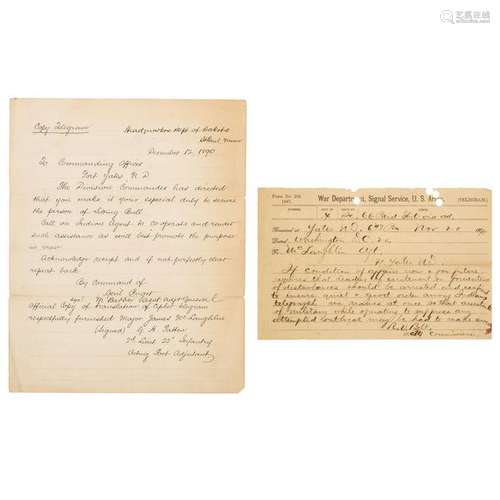 Copy Telegram
Headquarters Dept of Dakota
St Paul Minn
December 12, 1890
To Commanding Officer
Fort Yates N. D
The Division Commander has directed
that you make it your especial duty to secure
the person of Sitting Bull
Call on Indian Agent to cooperate and render
such assistance as will best promote the purpose
in view
Acknowledge receipt and if not perfectly clear
repeat back
By command of
Genl Ruger
sgd M Barber Asst Adjt General
Official Copy of translation of Cipher telegram
respectfully furnished Major James McLaughlin
(Signed)
2d Lieut 22d Infantry
Acting Post Adjutant
Form No.
War Department, Signal Service, U. S. Army
(TELEGRAM.)
Received at Yates ND Nov 20 1890
Dated Washington DC 20
To McLaughlin Agt
Ft Yates ND
If condition of affairs now or in future
requires that leaders of excitement or fomenters
of disturbances should be arrested and confined
to insure quiet & good order among Indians
telegraph me names at once so that assistance
of military while operating to suppress any
attempted outbreak may be had to make any
R V Belt
Actg Commissioner
艺典中国
yidianchina.com